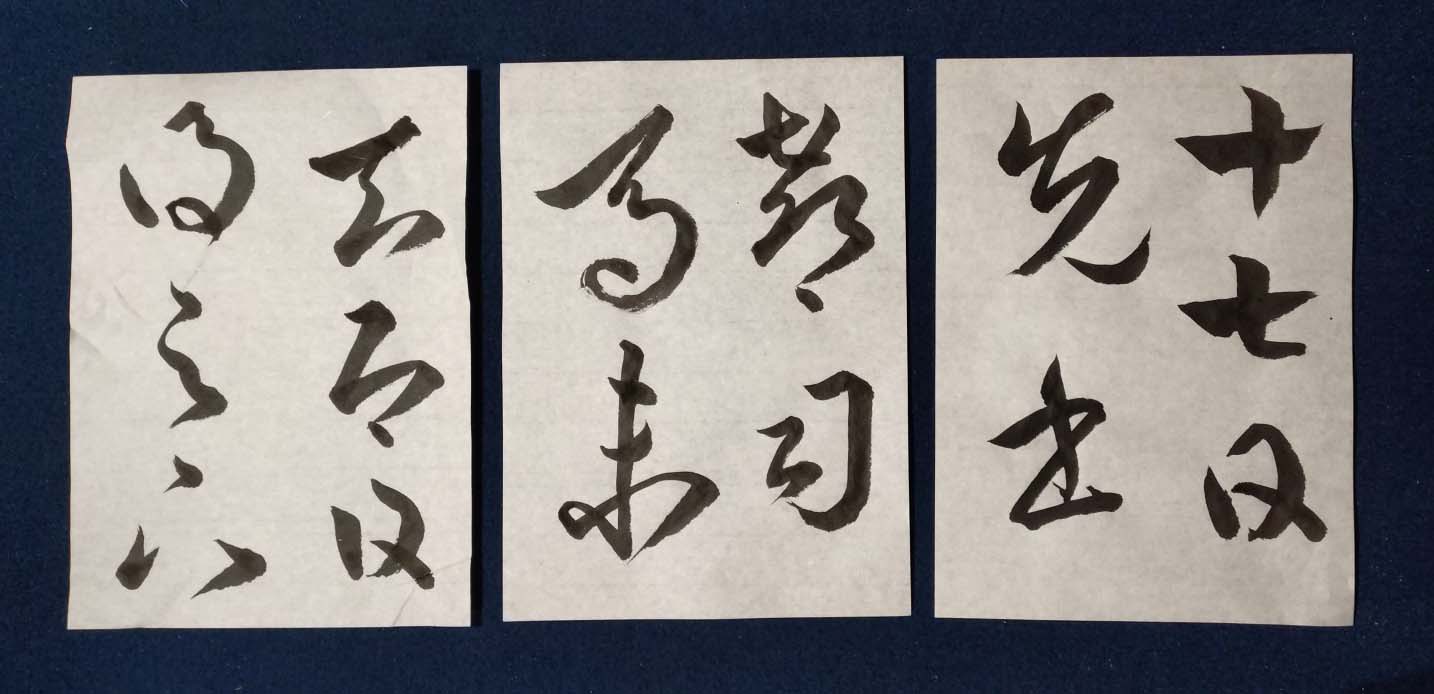 十七日
先書
郗司
馬未
去即日
得足下